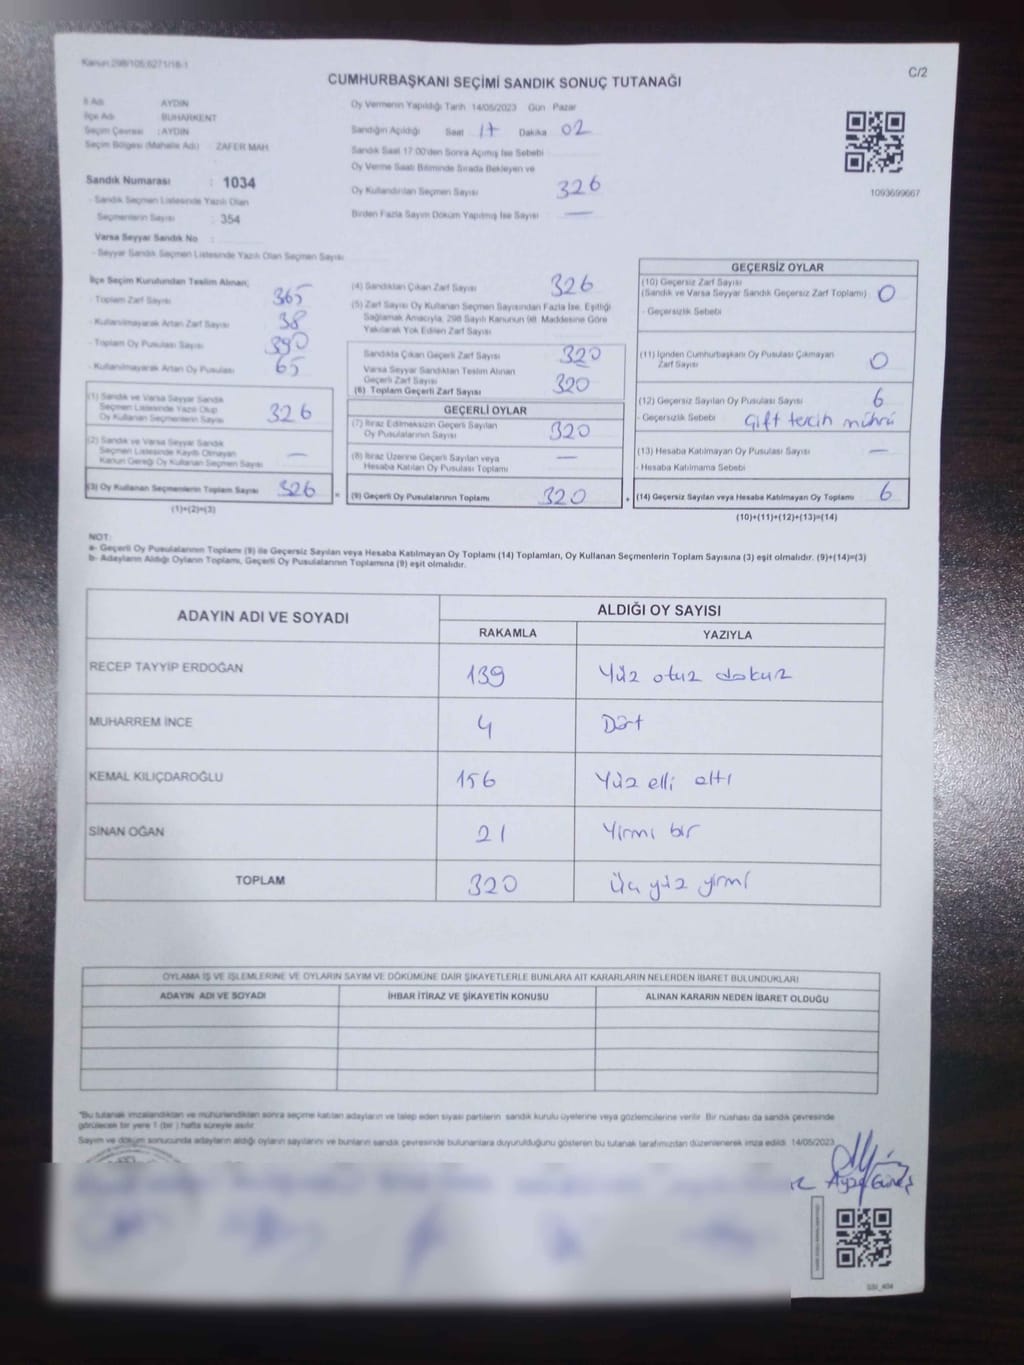 Kanun:298/105;6271/18-1
C/2
CUMHURBAŞKANI SEÇİMİ SANDIK SONUÇ TUTANAĞI
İl Adı AYDIN
İlçe Adı BUHARKENT
Seçim Çevresi : AYDIN
Seçim Bölgesi (Mahalle Adı) ZAFER MAH.
Sandık Numarası : 1034
- Sandık Seçmen Listesinde Yazılı Olan
Seçmenlerin Sayısı : 354
Varsa Seyyar Sandık No :
- Seyyar Sandık Seçmen Listesinde Yazılı Olan Seçmen Sayısı:
Oy Vermenin Yapıldığı Tarih 14/05/2023 Gün Pazar
Sandığın Açıldığı Saat 17 Dakika 02
Sandık Saat 17:00'den Sonra Açımış İse Sebebi
Oy Verme Saati Bitiminde Sırada Bekleyen ve
Oy Kullandırılan Seçmen Sayısı 326
Birden Fazla Sayım Döküm Yapılmış İse Sayısı —
1093699667
İlçe Seçim Kurulundan Teslim Alınan;
- Toplam Zarf Sayısı 365
- Kullanılmayarak Artan Zarf Sayısı 38
- Toplam Oy Pusulası Sayısı 390
- Kullanılmayarak Artan Oy Pusulası 65
(1) Sandık ve Varsa Seyyar Sandık
Seçmen Listesinde Yazılı Olup
Oy Kullanan Seçmenlerin Sayısı 326
(2) Sandık ve Varsa Seyyar Sandık
Seçmen Listesinde Kayıtlı Olmayan
Kanun Gereği Oy Kullanan Seçmen Sayısı —
(3) Oy Kullanan Seçmenlerin Toplam Sayısı 326
(1)+(2)=(3)
(4) Sandıktan Çıkan Zarf Sayısı 326
(5) Zarf Sayısı Oy Kullanan Seçmen Sayısından Fazla İse, Eşitliği
Sağlamak Amacıyla, 298 Sayılı Kanunun 98. Maddesine Göre
Yakılarak Yok Edilen Zarf Sayısı
Sandıkta Çıkan Geçerli Zarf Sayısı 320
Varsa Seyyar Sandıktan Teslim Alınan
Geçerli Zarf Sayısı
(6) Toplam Geçerli Zarf Sayısı 320
GEÇERLİ OYLAR
(7) İtiraz Edilmeksizin Geçerli Sayılan
Oy Pusulalarının Sayısı 320
(8) İtiraz Üzerine Geçerli Sayılan veya
Hesaba Katılan Oy Pusulası Toplamı —
= (9) Geçerli Oy Pusulalarının Toplamı 320
GEÇERSİZ OYLAR
(10) Geçersiz Zarf Sayısı
(Sandık ve Varsa Seyyar Sandık Geçersiz Zarf Toplamı) 0
- Geçersizlik Sebebi
(11) İçinden Cumhurbaşkanı Oy Pusulası Çıkmayan
Zarf Sayısı 0
(12) Geçersiz Sayılan Oy Pusulası Sayısı 6
- Geçersizlik Sebebi Çift tercih mührü
(13) Hesaba Katılmayan Oy Pusulası Sayısı —
- Hesaba Katılmama Sebebi
+ (14) Geçersiz Sayılan veya Hesaba Katılmayan Oy Toplamı 6
(10)+(11)+(12)+(13)=(14)
NOT:
a- Geçerli Oy Pusulalarının Toplamı (9) ile Geçersiz Sayılan veya Hesaba Katılmayan Oy Toplamı (14) Toplamları, Oy Kullanan Seçmenlerin Toplam Sayısına (3) eşit olmalıdır. (9)+(14)=(3)
b- Adayların Aldığı Oyların Toplamı, Geçerli Oy Pusulalarının Toplamına (9) eşit olmalıdır.
ADAYIN ADI VE SOYADI ALDIĞI OY SAYISI
RAKAMLA YAZIYLA
RECEP TAYYİP ERDOĞAN 139 Yüz otuz dokuz
MUHARREM İNCE 4 Dört
KEMAL KILIÇDAROĞLU 156 Yüz elli altı
SİNAN OĞAN 21 Yirmi bir
TOPLAM 320 Üç yüz yirmi
OYLAMA İŞ VE İŞLEMLERİNE VE OYLARIN SAYIM VE DÖKÜMÜNE DAİR ŞİKAYETLERLE BUNLARA AİT KARARLARIN NELERDEN İBARET BULUNDUKLARI
ADAYIN ADI VE SOYADI İHBAR İTİRAZ VE ŞİKAYETİN KONUSU ALINAN KARARIN NEDEN İBARET OLDUĞU
"Bu tutanak imzalandıktan ve mühürlendikten sonra seçime katılan adayların ve talep eden siyasi partilerin sandık kurulu üyelerine veya gözlemcilerine verilir. Bir nüshası da sandık çevresinde
görülecek bir yere 1 (bir ) hafta süreyle asılır.
Sayım ve döküm sonucunda adayların aldığı oyların sayılarını ve bunların sandık çevresinde bulunanlara duyurulduğunu gösteren bu tutanak tarafımızdan düzenlenerek imza edildi. 14/05/2023
Ayşe Güneş
SSI_404